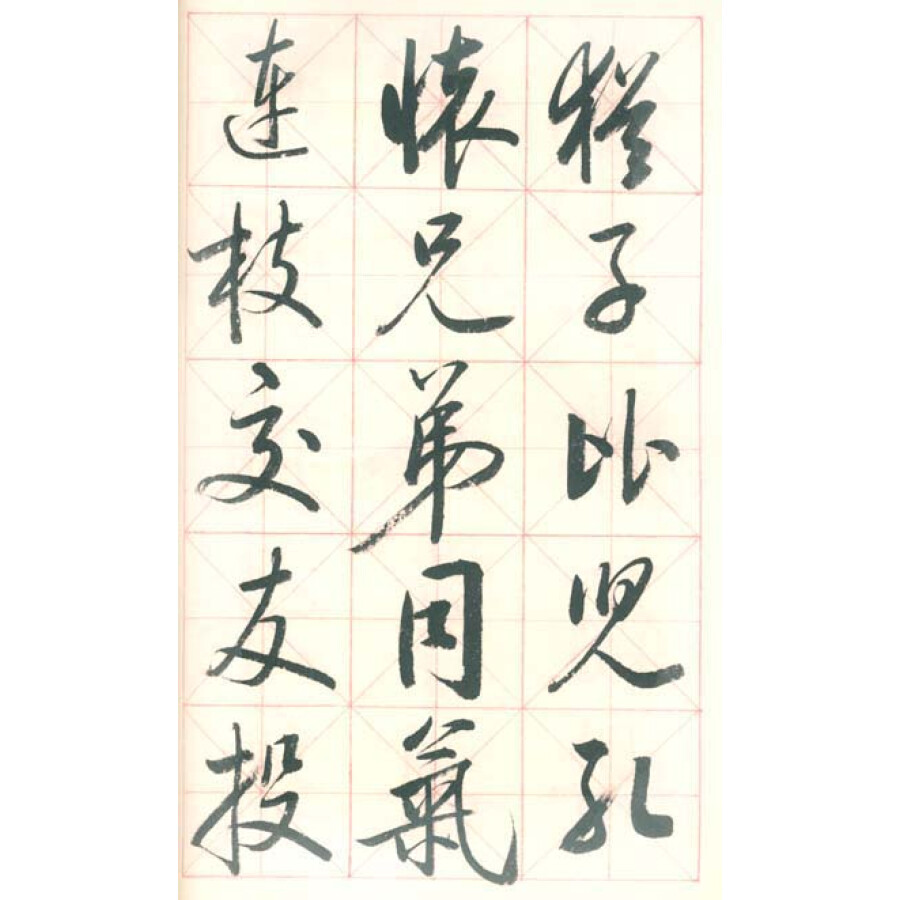 猶子比兒孔
懷兄弟同氣
連枝交友投